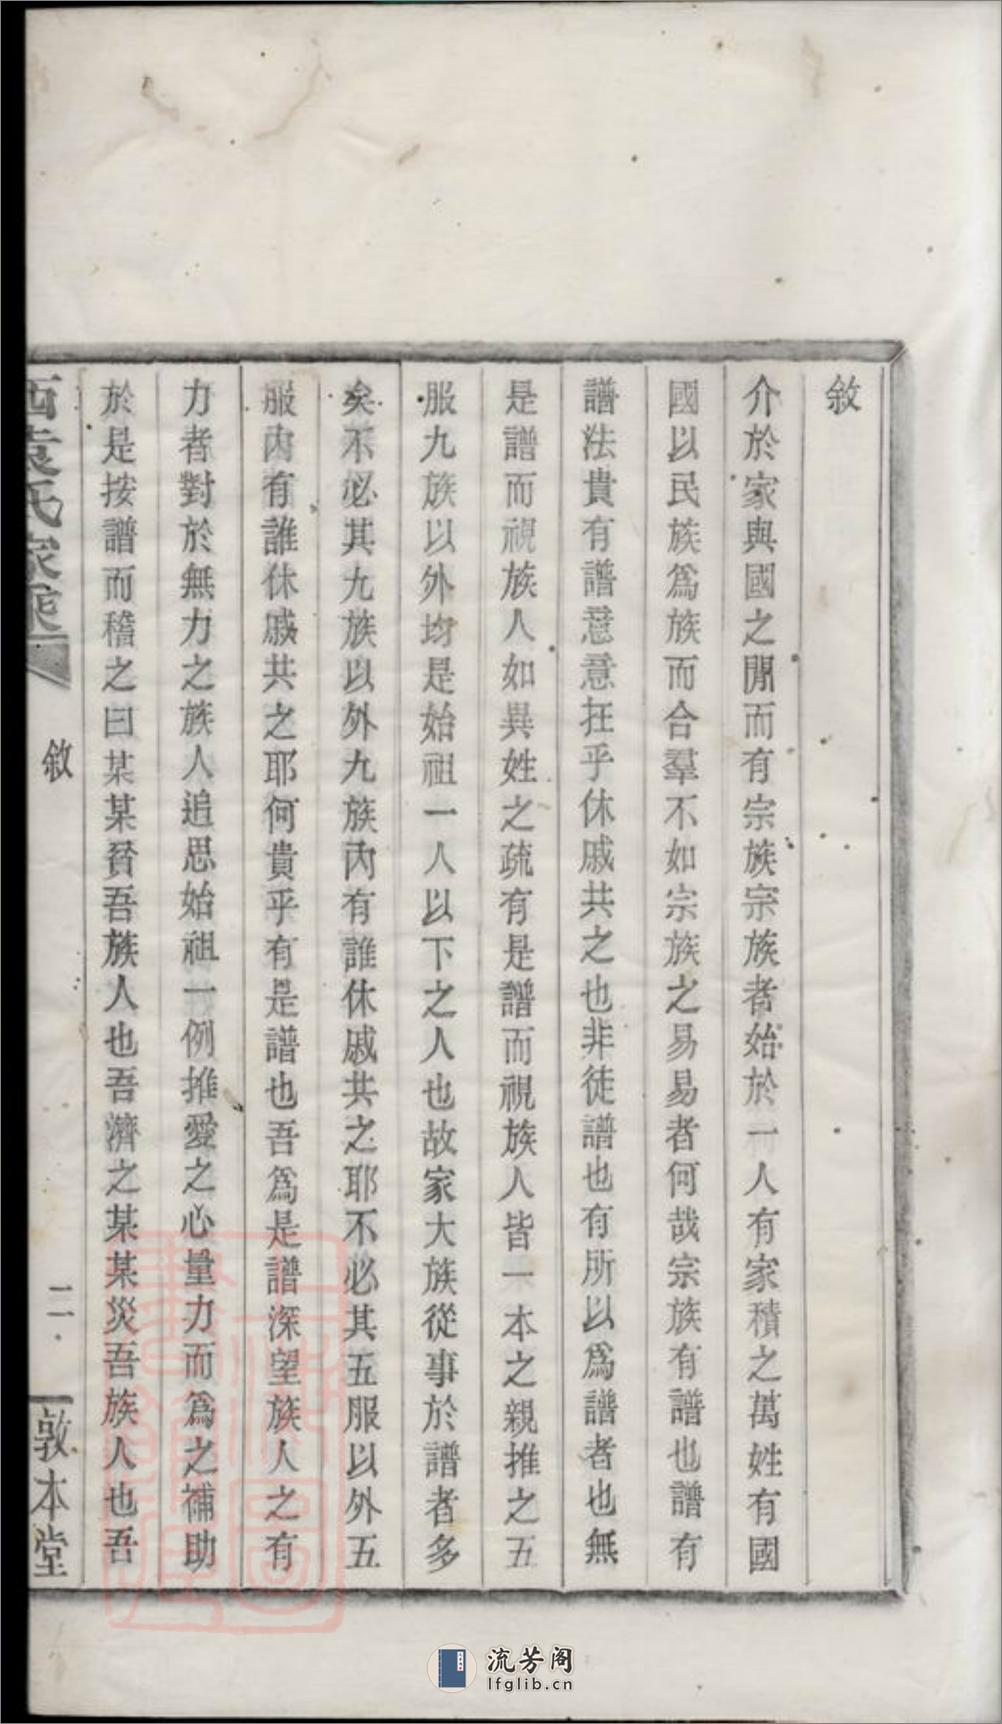 敘
介於家與國之閒而有宗族宗族者始於一人有家積之萬姓有國
國以民族爲族而合羣不如宗族之易易者何哉宗族有譜也譜有
譜法貴有譜意意在乎休戚共之也非徒譜也有所以爲譜者也無
是譜而視族人如異姓之疏有是譜而視族人皆一本之親推之五
服九族以外均是始祖一人以下之人也故家大族從事於譜者多
矣不必其九族以外九族內有誰休戚共之耶不必其五服以外五
服內有誰休戚共之耶何貴乎有是譜也吾爲是譜深望族人之有
力者對於無力之族人追思始祖一例推愛之心量力而爲之補助
於是按譜而稽之曰某某貧吾族人也吾濟之某某災吾族人也吾
西袁氏家乘
敘
二
敦本堂
流芳阁
lfglib.cn